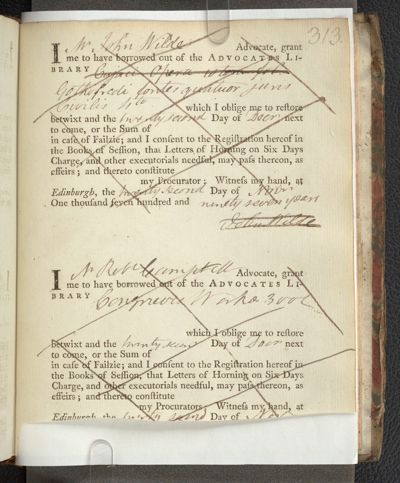 313.
I Mr. John Wilde Advocate, grant
me to have borrowed out of the ADVOCATES LI-
BRARY Cujacii Opera
Gothofredi fontes quatuor juris
Civilis 4to
which I oblige me to restore
betwixt and the twenty second Day of Decr next
to come, or the Sum of
in case of Failzie; and I consent to the Registration hereof in
the Books of Session, that Letters of Horning on Six Days
Charge, and other executorials needful, may pass thereon, as
effeirs; and thereto constitute
my Procurator; Witness my hand, at
Edinburgh, the twenty second Day of Novr
One thousand seven hundred and ninety seven years
John Wilde
I Mr Robt Campbell Advocate, grant
me to have borrowed out of the ADVOCATES LI-
BRARY Congreves Works 3 vol
which I oblige me to restore
betwixt and the twenty second Day of Decr next
to come, or the Sum of
in case of Failzie; and I consent to the Registration hereof in
the Books of Session, that Letters of Horning on Six Days
Charge, and other executorials needful, may pass thereon, as
effeirs; and thereto constitute
my Procurators; Witness my hand, at
Edinburgh, the twenty second Day of